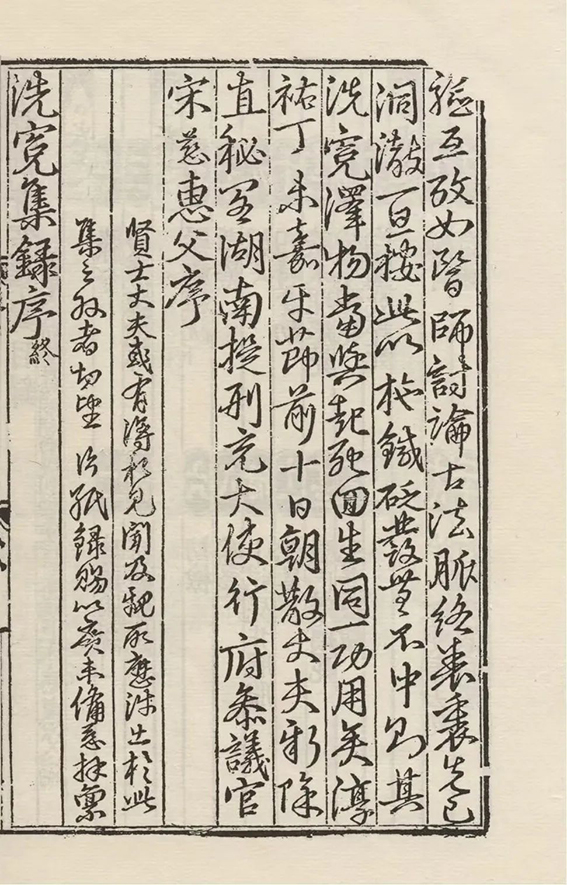 驗互攷如醫師討論古法脈絡表裏先已
洞澈一旦按此以施鍼砭發無不中則其
洗寃澤物當與起死回生同一功用矣淳
祐丁未嘉平節前十日朝散大夫新除
直秘閣湖南提刑充大使行府參議官
宋慈惠父序
賢士大夫或有得於見聞及親所歷涉出於此
集之外者切望片紙録賜以廣未備慈拜稟
洗寃集録序終